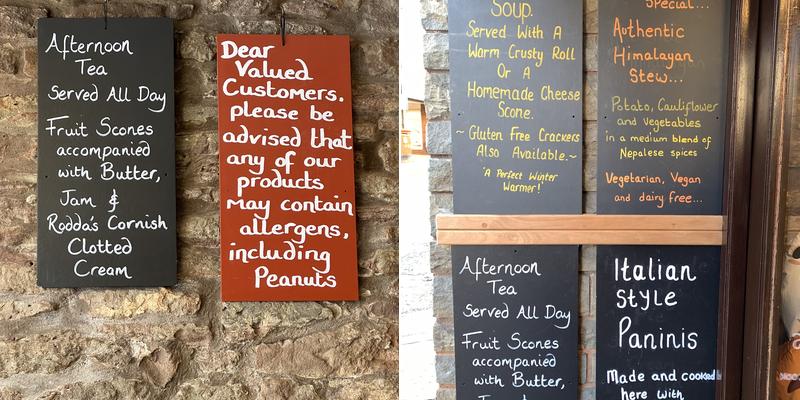 Afternoon
Tea
Served All Day
Fruit Scones
accompanied
with Butter,
Jam &
Rodda's Cornish
Clotted
Cream
Dear
Valued
Customers.
please be
advised that
any of our
products
may contain
allergens,
including
Peanuts
SOUP.
Served With A
Warm Crusty Roll
Or A
Homemade Cheese
Scone.
~ Gluten Free Crackers
Also Available.~
'A Perfect Winter
Warmer!'
Special...
Authentic
Himalayan
Stew...
Potato, Cauliflower
and vegetables
in a medium blend of
Nepalese spices
Vegetarian, Vegan
and dairy free...
Afternoon
Tea
Served All Day
Fruit Scones
accompanied
with Butter,
Italian
STYLE
Paninis
Made and cooked
here with